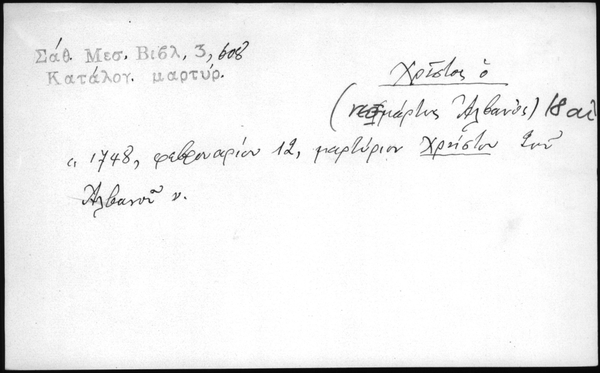 Σάθ. Μεσ. Βιβλ, 3, 608
Κατάλογ. μαρτύρ.
Χρῆστος ὁ
(νεομάρτυς Ἀλβανός) 18 αἰ
" 1748, φεβρουαρίου 12, μαρτύριον Χρήστου τοῦ
Ἀλβανοῦ ".